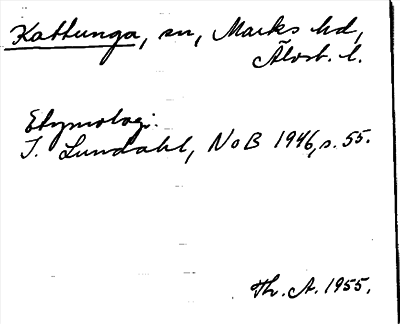 Kattunga, sn, Marks hd,
Älvsb. l.
Etymologi:
I. Lundahl, NoB 1946, s. 55.
Th. A. 1955.